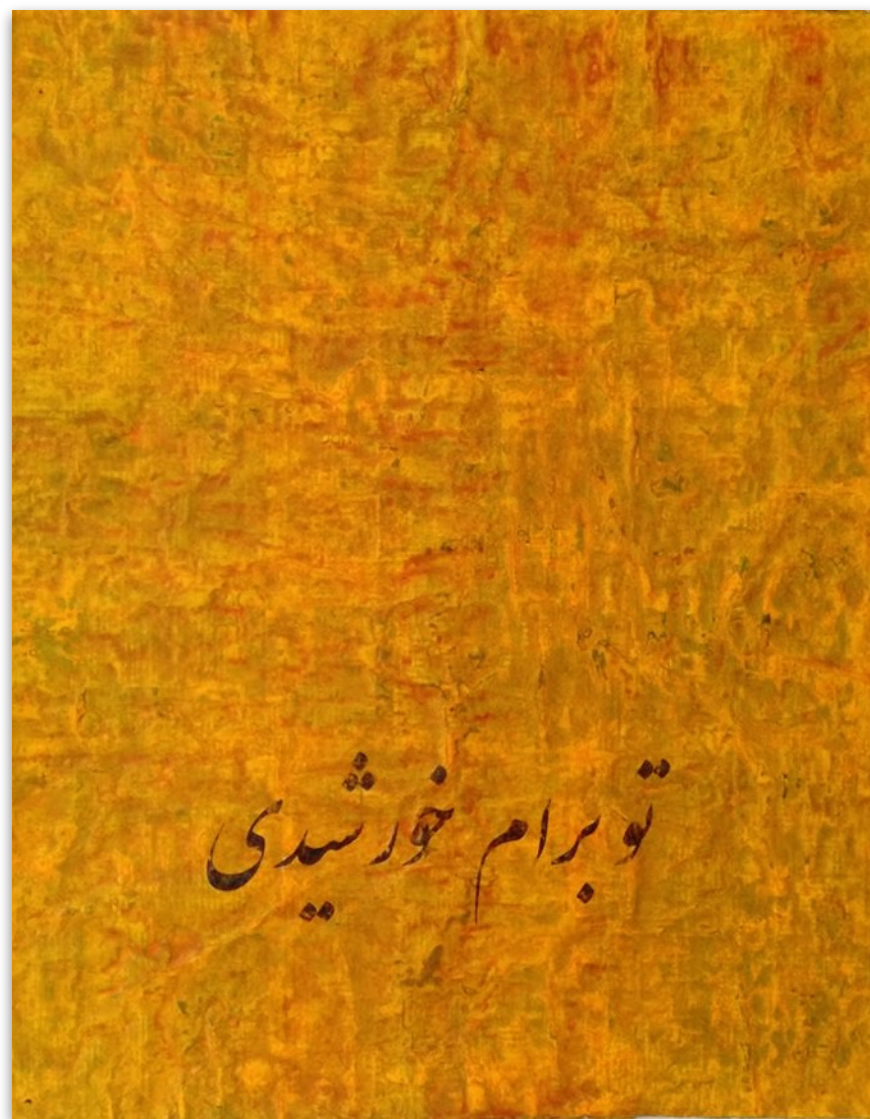 تو برام خورشیدی